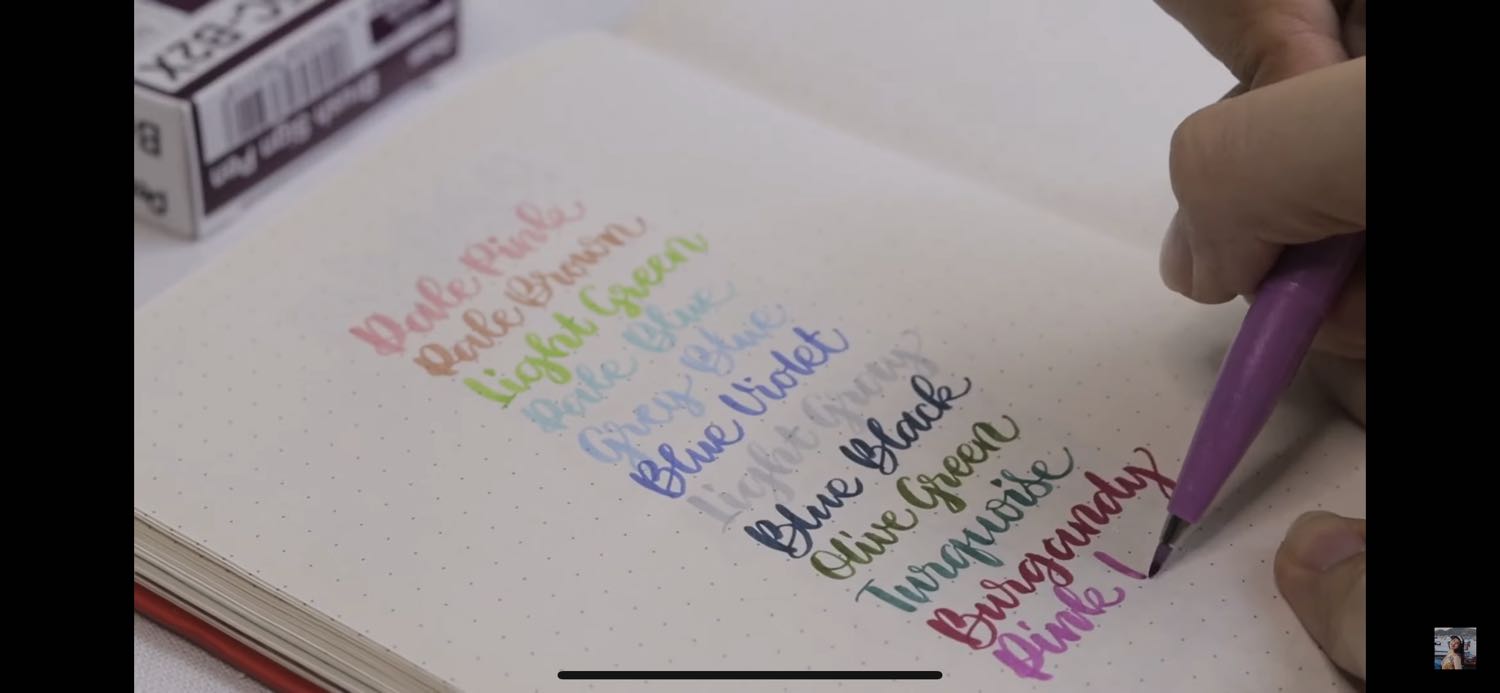 Pale Pink
Pale Brown
Light Green
Pale Blue
Grey Blue
Blue Violet
Light Gray
Blue Black
Olive Green
Turquoise
Burgandy
Pink
Brush Sign Pen